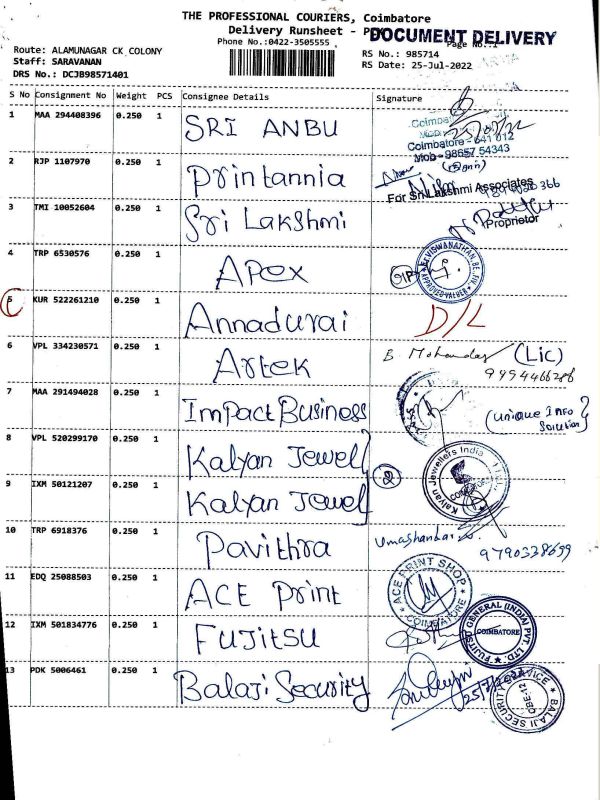 THE PROFESSIONAL COURIERS, Coimbatore
Delivery Runsheet -
DOCUMENT DELIVERY
Phone No.:0422-3505555
Page No.:1
Route: ALAMUNAGAR CK_COLONY
RS No.: 985714
Staff: SARAVANAN
RS Date: 25-Jul-2022
DRS No.: DCJB98571401
S No Consignment No Weight PCS Consignee Details Signature
1 MAA 294408396 0.250 1 SRI ANBU
25/07/22
Coimbatore - 641 012
Mob - 98657 54343
2 RJP 1107970 0.250 1 Printannia
For Sri Lakshmi Associates
3 TMI 10052604 0.250 1 Sri Lakshmi
Proprietor
4 TRP 6530576 0.250 1 APex
VISWANATHAN, BE, FIV
APPROVED VALUER
5 KUR 522261210 0.250 1 Annadurai D/L
6 VPL 334230571 0.250 1 Artek B. Mohandas (Lic)
7 MAA 291494028 0.250 1 ImPact Business (Unique Info Solution)
8 VPL 520299170 0.250 1 Kalyan Jewel
Kalyan Jewellers India
9 IXM 50121207 0.250 1 Kalyan Jewel
2
10 TRP 6918376 0.250 1 Pavithra
9790328699
11 EDQ 25088503 0.250 1 ACE Print
ACE PRINT SHOP
COIMBATORE
12 IXM 501834776 0.250 1 FUJitsu
FUJITSU GENERAL (INDIA) PVT. LTD.
COIMBATORE
13 PDK 5006461 0.250 1 Balaji Security
BALAJI SECURITY SERVICE
CBE-12